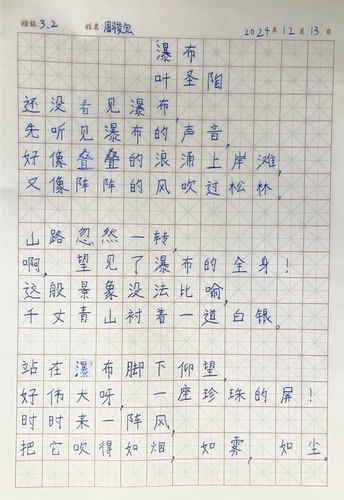 班级: 3.2 姓名: 周骏宏 2024年12月13日
瀑布
叶圣陶
还没看见瀑布,
先听见瀑布的声音,
好像叠叠的浪涌上岸滩,
又像阵阵的风吹过松林。
山路忽然一转,
啊,望见了瀑布的全身!
这般景象没法比喻,
千丈青山衬着一道白银。
站在瀑布脚下仰望,
好伟大呀,一座珍珠的屏!
时时来一阵风,
把它吹得如烟,如雾,如尘。